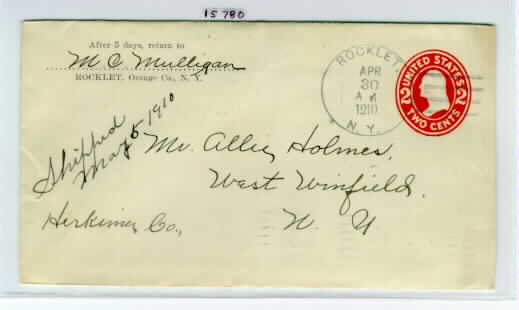 15 780
After 5 days, return to
M C Mulligan
ROCKLET, Orange Co., N. Y.
ROCKLET
APR
30
A M
1910
N. Y.
UNITED STATES
2 2
TWO CENTS
Shipped
May 5 1910
Mr. Allie Holmes,
West Winfield,
Herkimer Co.,
N. Y